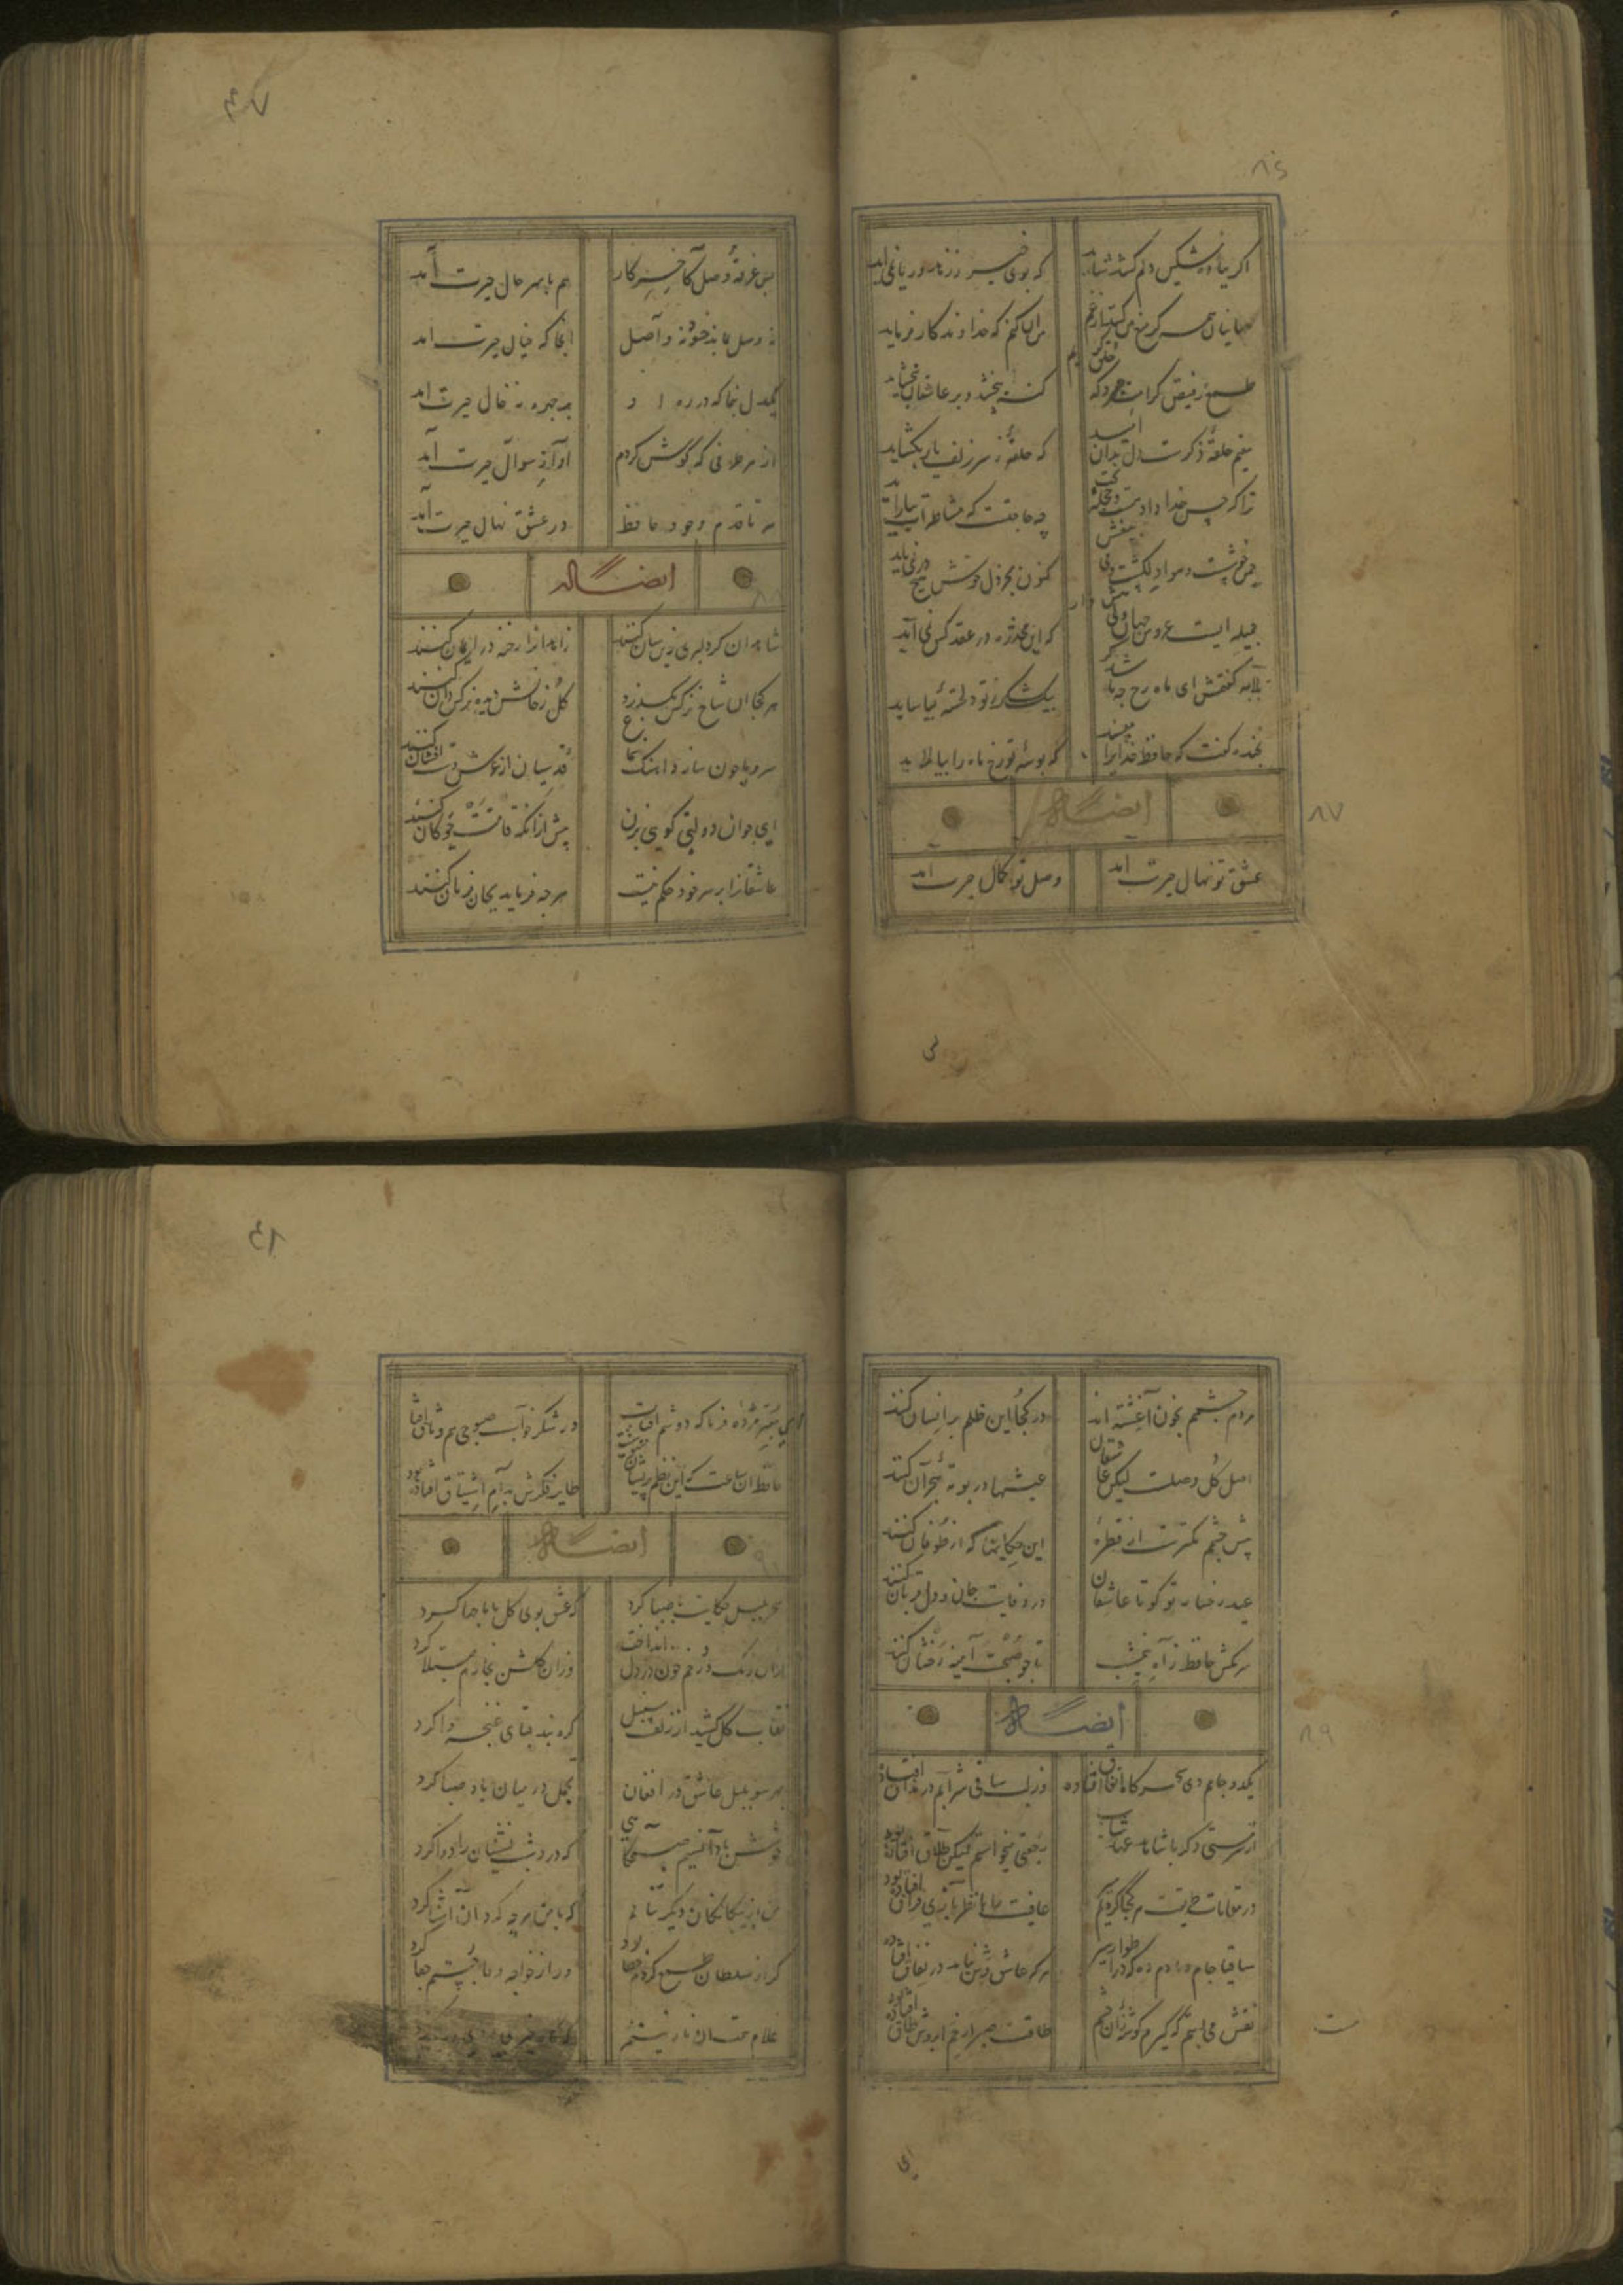 ۸۶
اگر بباده مشکین دلم کشد شاید که بوی خیر ز زهد و ریا نمی اید
جهانیان همه گر منع من کنند از من آن کنم که خداوندگار فرماید
طمع ز فیض کرامت مبر که خلق کریم گنه ببخشد و بر عاشقان ببخشاید
مقیم حلقهٔ ذکرست دل بدان امید که حلقهٔ ز سر زلف یار بکشاید
ترا که حسن خداداد هست و حجله بخت چه حاجتست که مشاطه ات بیاراید
چمن خوشست و هوا دلکشست و می بیغش کنون بجز دل خوش هیچ در نمی باید
جمیله ایست عروس جهان ولی هش دار که این مخدره در عقد کس نمی آید
بلابه گفتمش ای ماه رخ چه باشد گر بیک شکر ز تو دلخستهٔ بیاساید
بخنده گفت که حافظ خدایرا مپسند که بوسهٔ تو رخ ماه را بیالاید
ایضاله
۸۷
عشق تو نهال حیرت امد وصل تو کمال حیرت امد
بس غرقهٔ وصل کاخر کار هم با سر حال حیرت آمد
نه وصل بماند و نه واصل انجا که خیال حیرت امد
یکدل بنما که در ره او بر چهره نه خال حیرت امد
از هر طرفی که گوش کردم آواز سوال حیرت آمد
سر تا قدم وجود حافظ در عشق نهال حیرت آمد
ایضاله
۸۸
شاهدان گر دلبری زین سان کنند زاهدانرا رخنه در ایمان کنند
هر کجا ان شاخ نرگس بگذرد گل رخانش دیده نرگس دان کنند
سرو ما چون سازد اهنگ سماع قدسیان از عرش دست افشان کنند
ای جوان دولتی گویی بزن پیش ازانکه قامتت چوگان کنند
عاشقانرا بر سر خود حکم نیست هر چه فرماید بجان فرمان کنند
مردم چشمم بخون آغشته اند در کجا این ظلم بر انسان کنند
اصل گل وصلست لیکن عاشقان عیشها در بوتهٔ هجران کنند
پیش چشم کمترست از قطرهٔ این حکایتها که از طوفان کنند
عید رخسار تو کو تا عاشقان در وفایت جان و دل قربان کنند
سرکش حافظ ز آه نیمشب تا چو صبحت آینه رخشان کنند
ایضاله
۸۹
یکدو جامم دی سحر که اتفاق افتاده وز لب ساقی شرابم در مذاق افتاده
از سر مستی دگر با شاهد عهد شباب رجعتی میخواستم لیکن طلاق افتاده بود
در مقامات طریقت هر کجا کردیم عافیت را با نظر بازی فراق افتاده بود
ساقیا جام دمادم ده که در سیر هر که عاشق وش نیامد در نفاق افتاده
نقش می بستم که گیرم گوشهٔ زان چشم مست طاقت صبر از خم ابروش طاق افتاده بود
ای معبر مژده فرما که دوشم افتاب در شکرخواب صبوحی هم وثاق افتا
حافظ ان ساعت که این نظم پریشان طایر فکرش بدام اشتیاق افتاده بود
ایضاله
۹۰
سحر بلبل حکایت با صبا کرد که عشق بوی گل با ما چها کرد
ازان رنگ رخم خون در دل انداخت وزان گلشن بخارم مبتلا کرد
نقاب گل کشید از زلف سنبل گره بند قبای غنچه وا کرد
بهر سو بلبل عاشق در افغان میان باد صبا کرد
خوشش باد آن نسیم صبحگاهی که درد شب نشینان را دوا کرد
من از بیگانگان دیگر ننالم که با من هر چه کرد ان آشنا کرد
گر از سلطان طمع کردم خطا بود ور از خواجه وفا جستم جفا کرد
غلام همت ان نازنینم